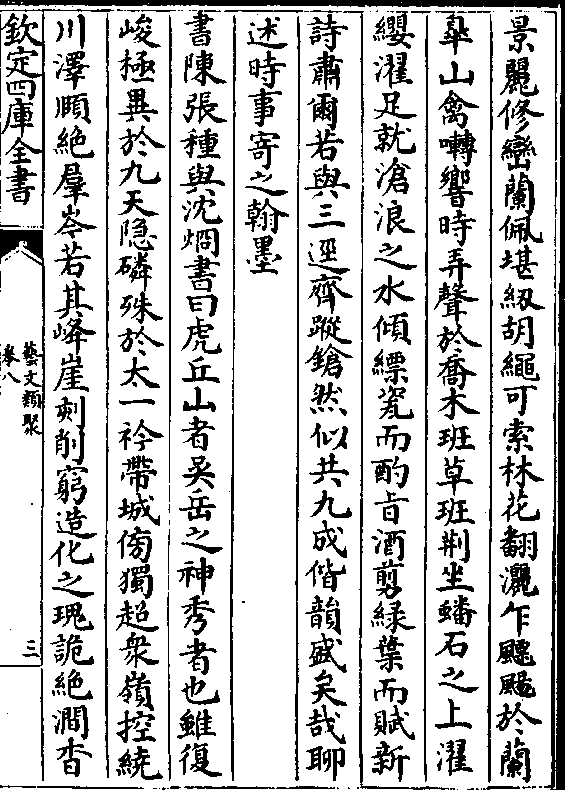 景麗修巒蘭佩堪紉胡繩可索林花翻灑乍飄颺於蘭
臯山禽囀響時弄聲於喬木班草班荆坐蟠石之上濯
纓濯足就滄浪之水傾縹瓷而酌旨酒剪綠葉而賦新
詩肅爾若與三逕齊蹤鎗然似共九成偕韻盛矣哉聊
述時事寄之翰墨
書陳張種與沈烱書曰虎丘山者吳岳之神秀者也雖復
峻極異於九天隐磷殊於太一衿帶城傍獨超衆嶺控繞
川澤顧絶羣岑若其峰崖刻削窮造化之瑰詭絶澗杳
欽定四庫全書
藝文類聚
卷八
三